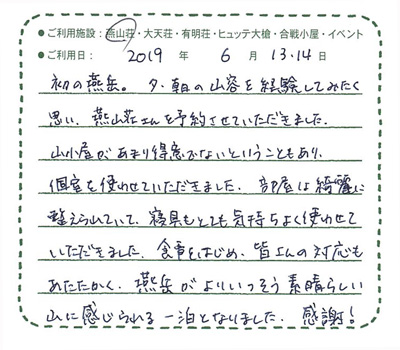 ●ご利用施設：燕山荘・大天荘・有明荘・ヒュッテ大槍・合戦小屋・イベント
●ご利用日： 2019 年 6 月 13.14 日
初の燕岳。夕・朝の山容を経験してみたく
思い、燕山荘さんを予約させていただきました。
山小屋があまり得意でないということもあり、
個室を使わせていただきました。部屋は綺麗に
整えられていて、寝具もとても気持ちよく使わせて
いただきました。食事をはじめ、皆さんの対応も
あたたかく、燕岳がよりいっそう素晴らしい
山に感じられる一泊となりました。感謝！